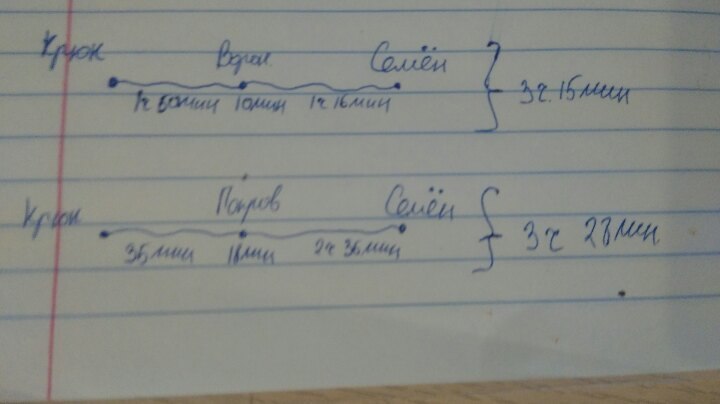 Крюк Ворон. Семён
1ч 50мин 10мин 1ч 16мин 3ч. 15мин
Крюк Покров Семён
35мин 18мин 2ч 36мин 3ч 28мин